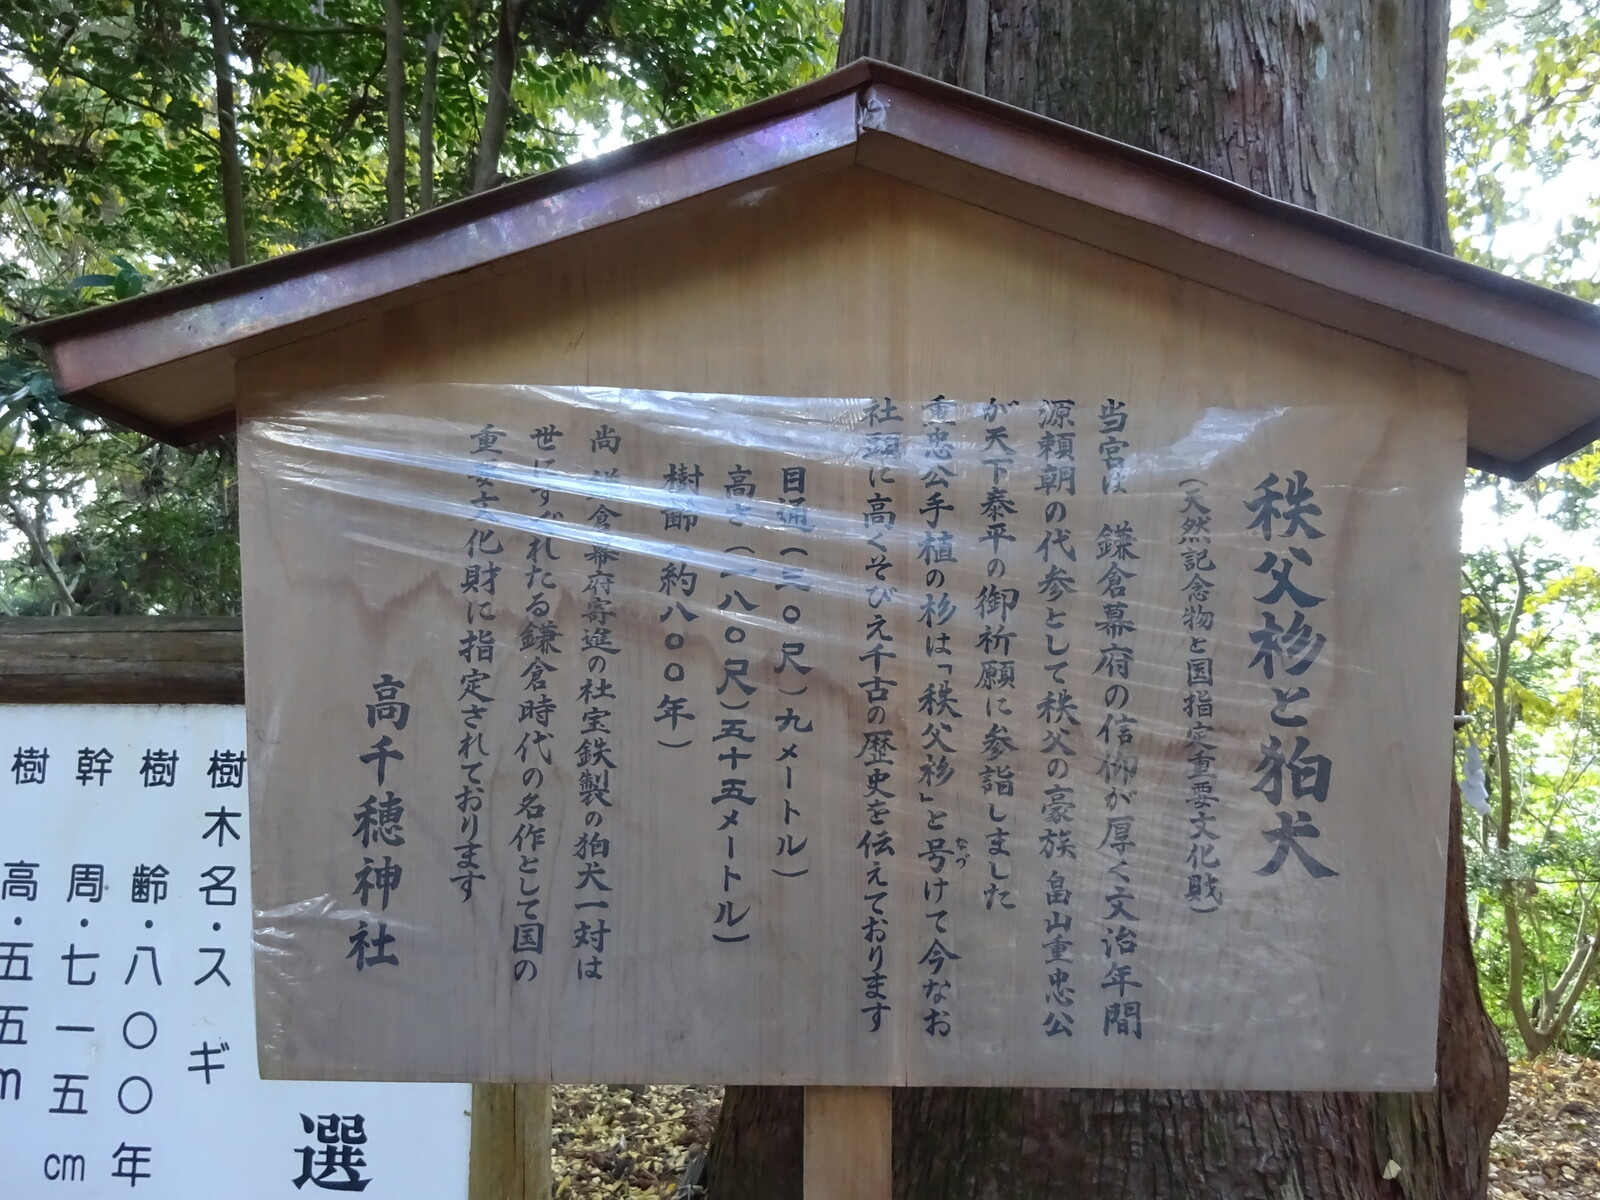 秩父杉と狛犬
(天然記念物と国指定重要文化戝)
当宮は 鎌倉幕府の信仰が厚く文治年間
源頼朝の代参として秩父の豪族 畠山重忠公
が天下泰平の御祈願に参詣しました
重忠公手植の杉は「秩父杉」と号けて今なお
なづ
社頭に高くそびえ千古の歴史を伝えております
目通(三〇尺)九メートル)
高さ(一八〇尺)五十五メートル)
樹齢(約八〇〇年)
尚 鎌倉幕府寄進の社宝鉄製の狛犬一対は
世にすぐれたる鎌倉時代の名作として国の
重要文化財に指定されております
高千穂神社
選
樹木名・スギ
樹齢・八〇〇年
幹周・七一五cm
樹高・五五m